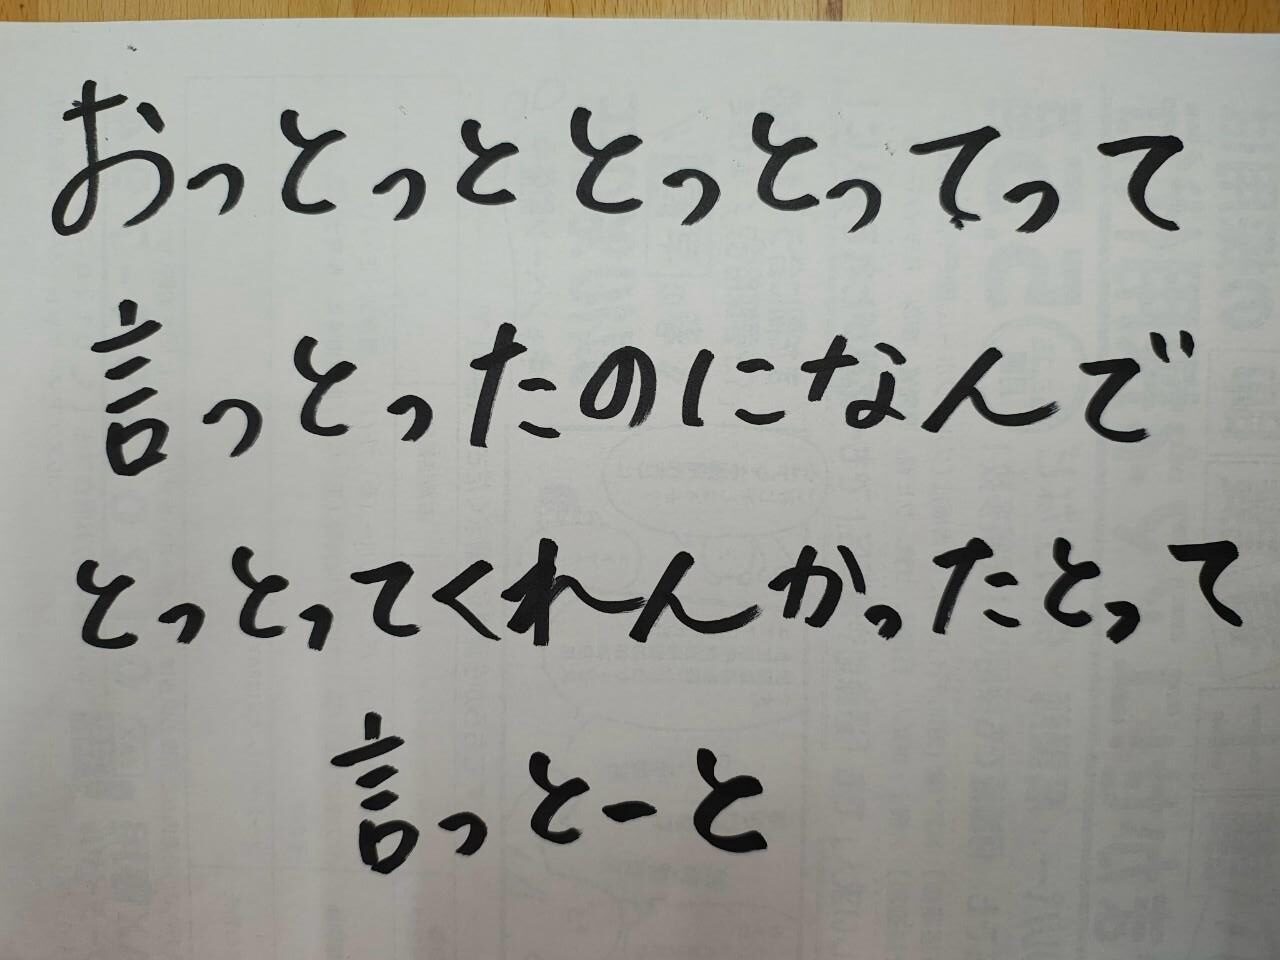 おっとっととっとってって
言っとったのになんで
とっとってくれんかったとって
言っとーと